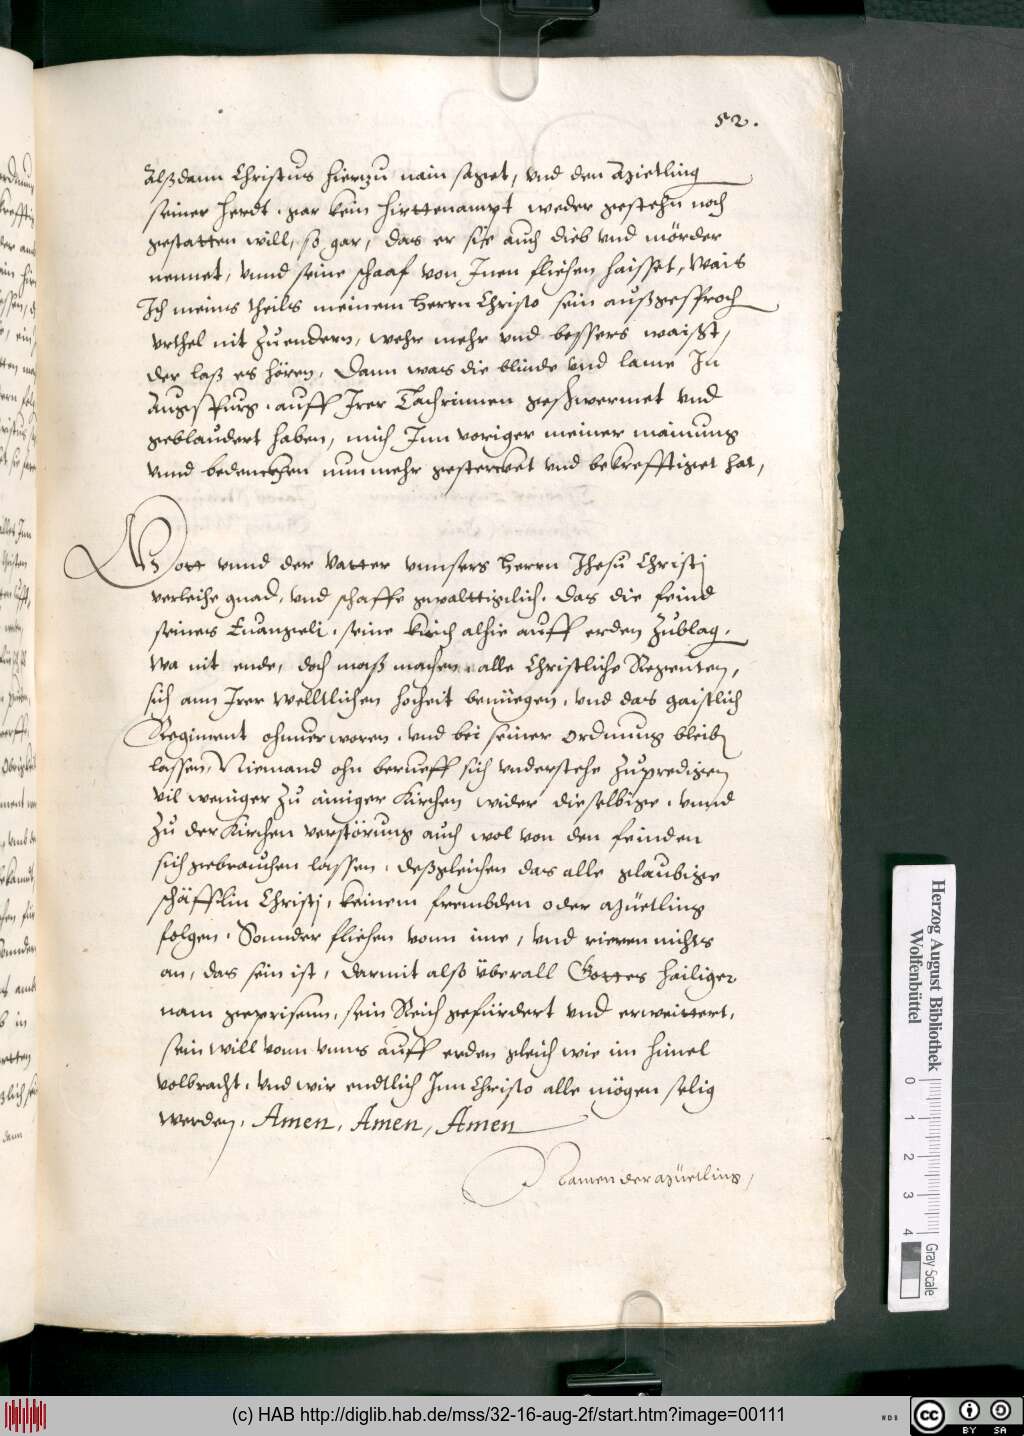 52.
Alßdann Christus hierzu nain saget, vnd den Mietling
seiner Herdt, gar kein Hirttenampt weder gestehn noch
gestatten will, so gar, das er sÿe auch dieb vnd mörder
nennet, vnnd seine schaaf von Inen fliehen haisset, Wais
Ich meins theils meinem Herrn Christo sein außgesproch
vrthel nit zuendern, wehr mehr vnd bessers waißt,
der laß es hören, Dann was die blinde vnd lame In
Augspurg, auff Irer Tachrinnen geschwermet vnd
geblaudert haben, mich Inn voriger meiner mainung
vnnd bedencken nunmehr gesterckt vnd bekrefftiget hat,
Gott vnnd der Vatter vnnsers Herrn Jhesu Christj
verleihe gnad, vnd schaffe gwalttigclich, das die feind
seines Euangeli, seine kirch alhie auff erden zublag,
Wa nit ende, doch maß machen, alle Christliche Regenten,
sich ann Irer Welltlichen hocheit benüegen, vnd das gaistlich
Regiment ohnuerworen, vnd bei seiner Ordnung bleib
lassen, Niemand ohn berueff sich vnderstehe zupredigen
vil weniger zu ainiger Kirchen wider dieselbige, vnnd
zu der Kirchen verstörung auch wol von den feinden
sich gebrauchen lassen, deßgleichen das alle glaubige
schäfflin Christj, keinem frembden oder Müetling
folgen, Sonnder fliehen vonn ime, vnd nichts
an, das sein ist, darmit also überall Gottes hailiger
nam geprisenn, sein Reich gefürdert vnd erweittert,
sein will vonn vnns auff erden gleich wie im himel
volbracht, vnd wir endtlich Inn Christo alle mögen selig
werden, Amen, Amen, Amen
Namen der Müetling,
Herzog August Bibliothek
Wolfenbüttel
0 1 2 3 4
Gray Scale
(c) HAB http://diglib.hab.de/mss/32-16-aug-2f/start.htm?image=00111
cc BY SA